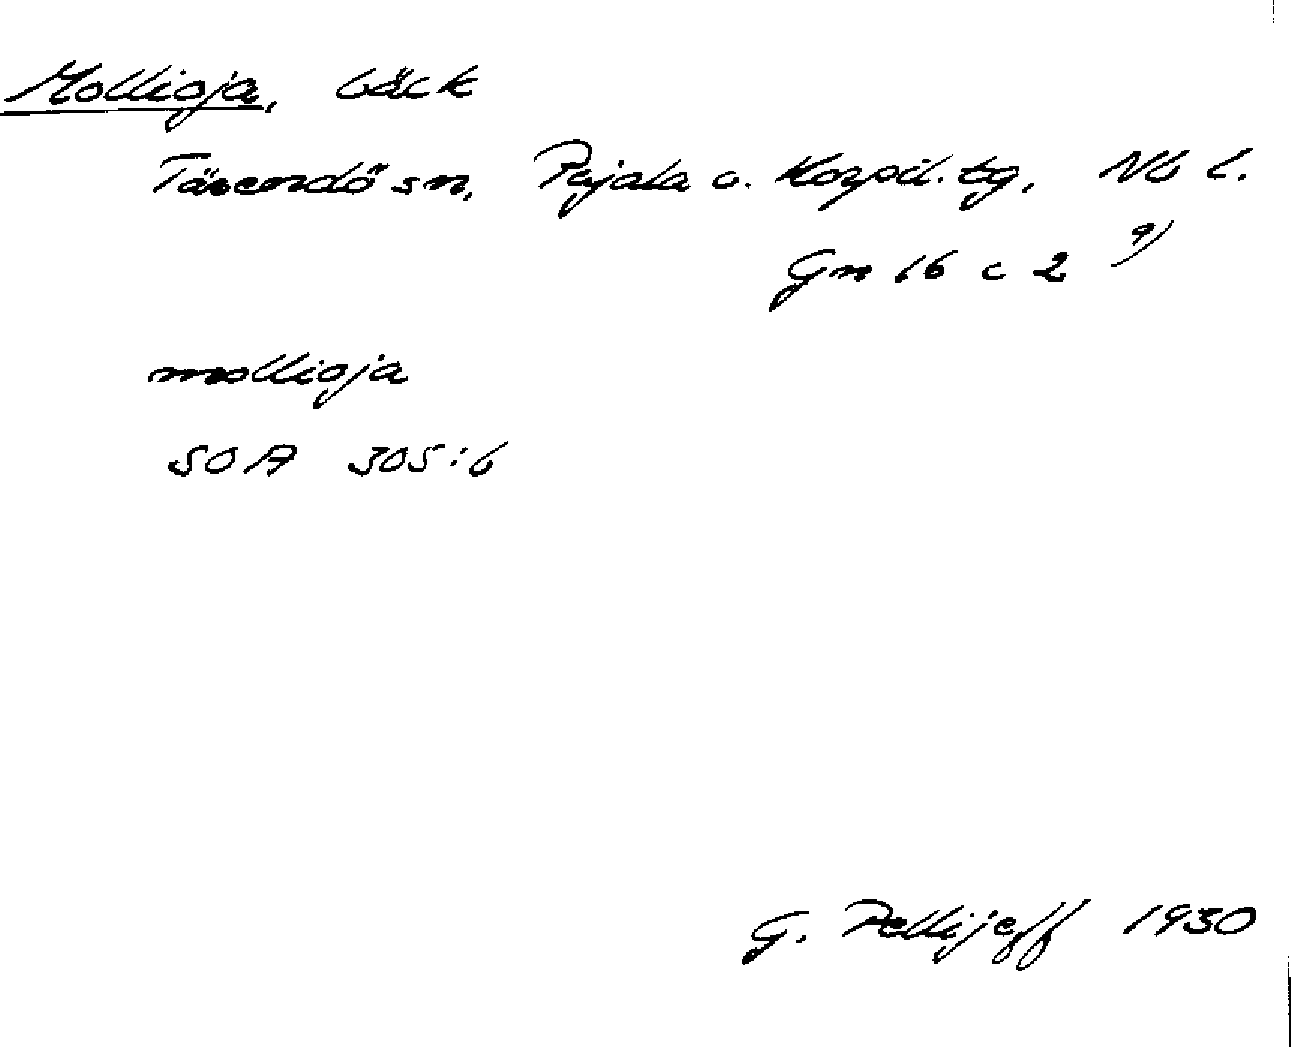 Mollioja, bäck
Tärendö sn, Pajala o. Korpil. tg, Nb l.
Gn 16 c 2 9)
mollioja
SOA 305:6
G. Pellijeff 1930